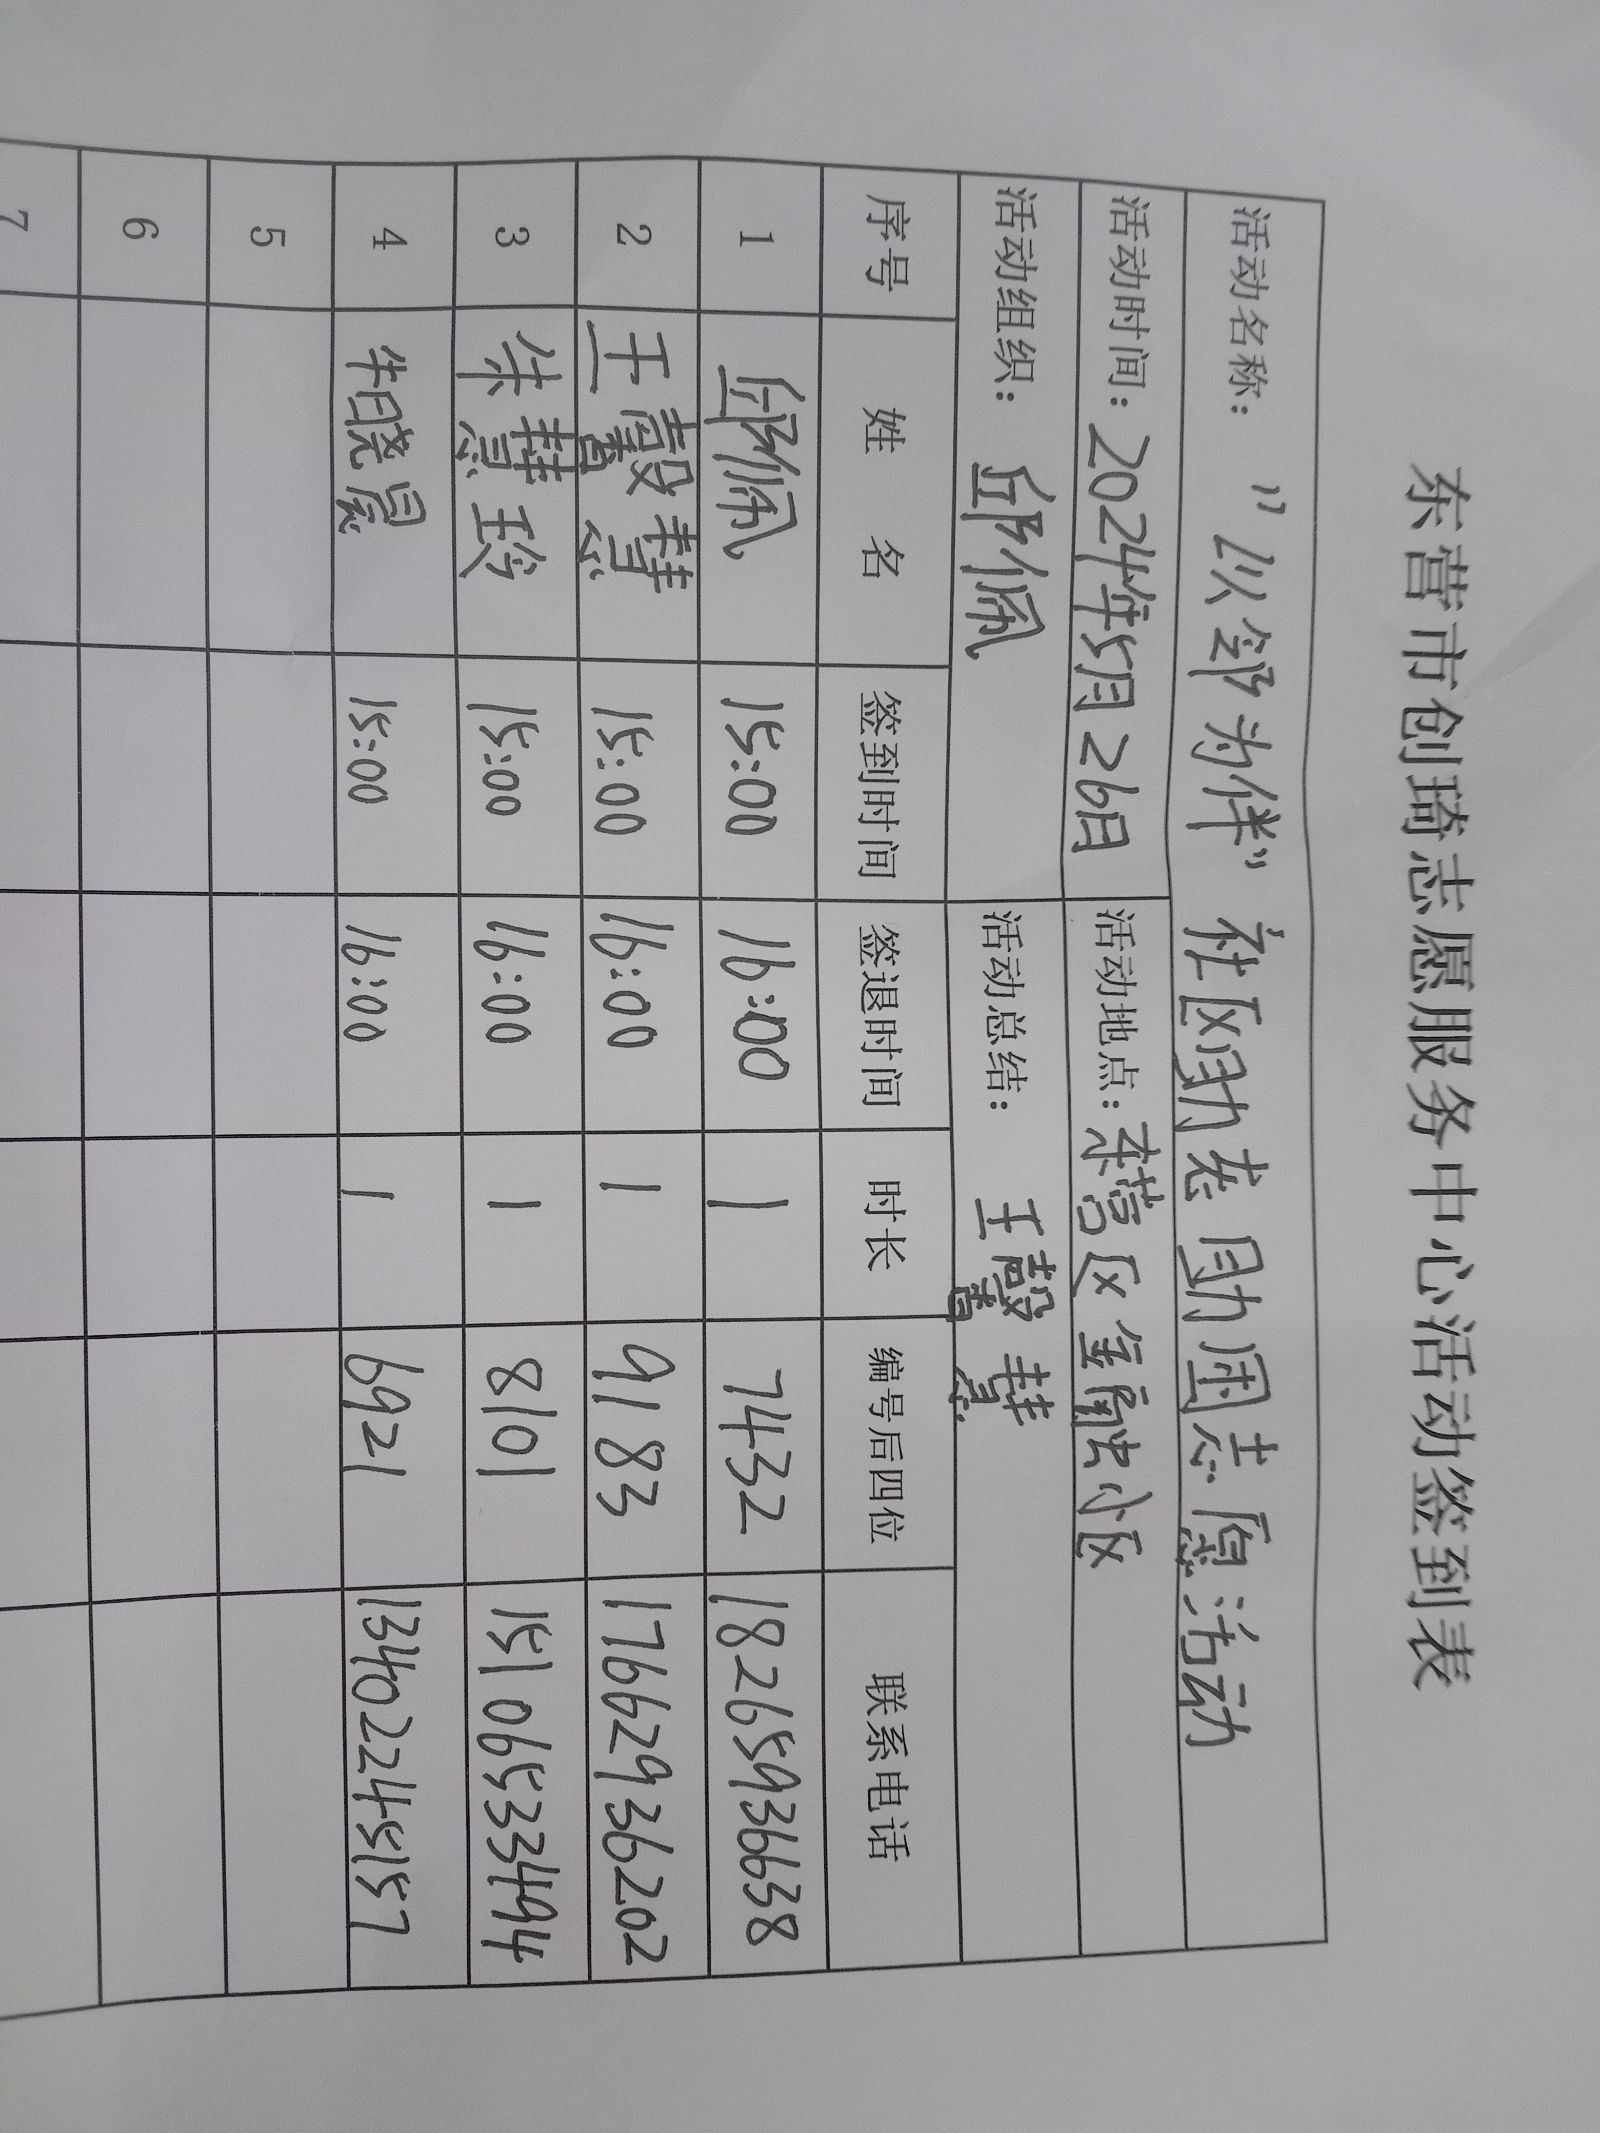 东营市创琦志愿服务中心活动签到表
活动名称："以邻为伴"社区助老助困志愿活动
活动时间：2024年5月26日 活动地点：东营区金融小区
活动组织：邱佩 活动总结：王馨慧
序号 姓名 签到时间 签退时间 时长 编号后四位 联系电话
1 邱佩 15:00 16:00 1 7432 18265936638
2 王馨慧 15:00 16:00 1 9183 17662936202
3 朱慧玲 15:00 16:00 1 8101 15106533494
4 牛晓晨 15:00 16:00 1 6921 13402245157
5
6
7